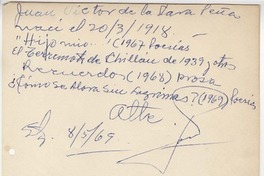 Juan Victor de la Jara Peñas
nací el 20/3/1918
"Hijo mio" (1967 Poesias)
El Terremoto de Chillan de 1939 y otros
Recuerdos (1968) prosa
¿Cómo se llora sin lagrimas? (1969) Poesias
8/5/69